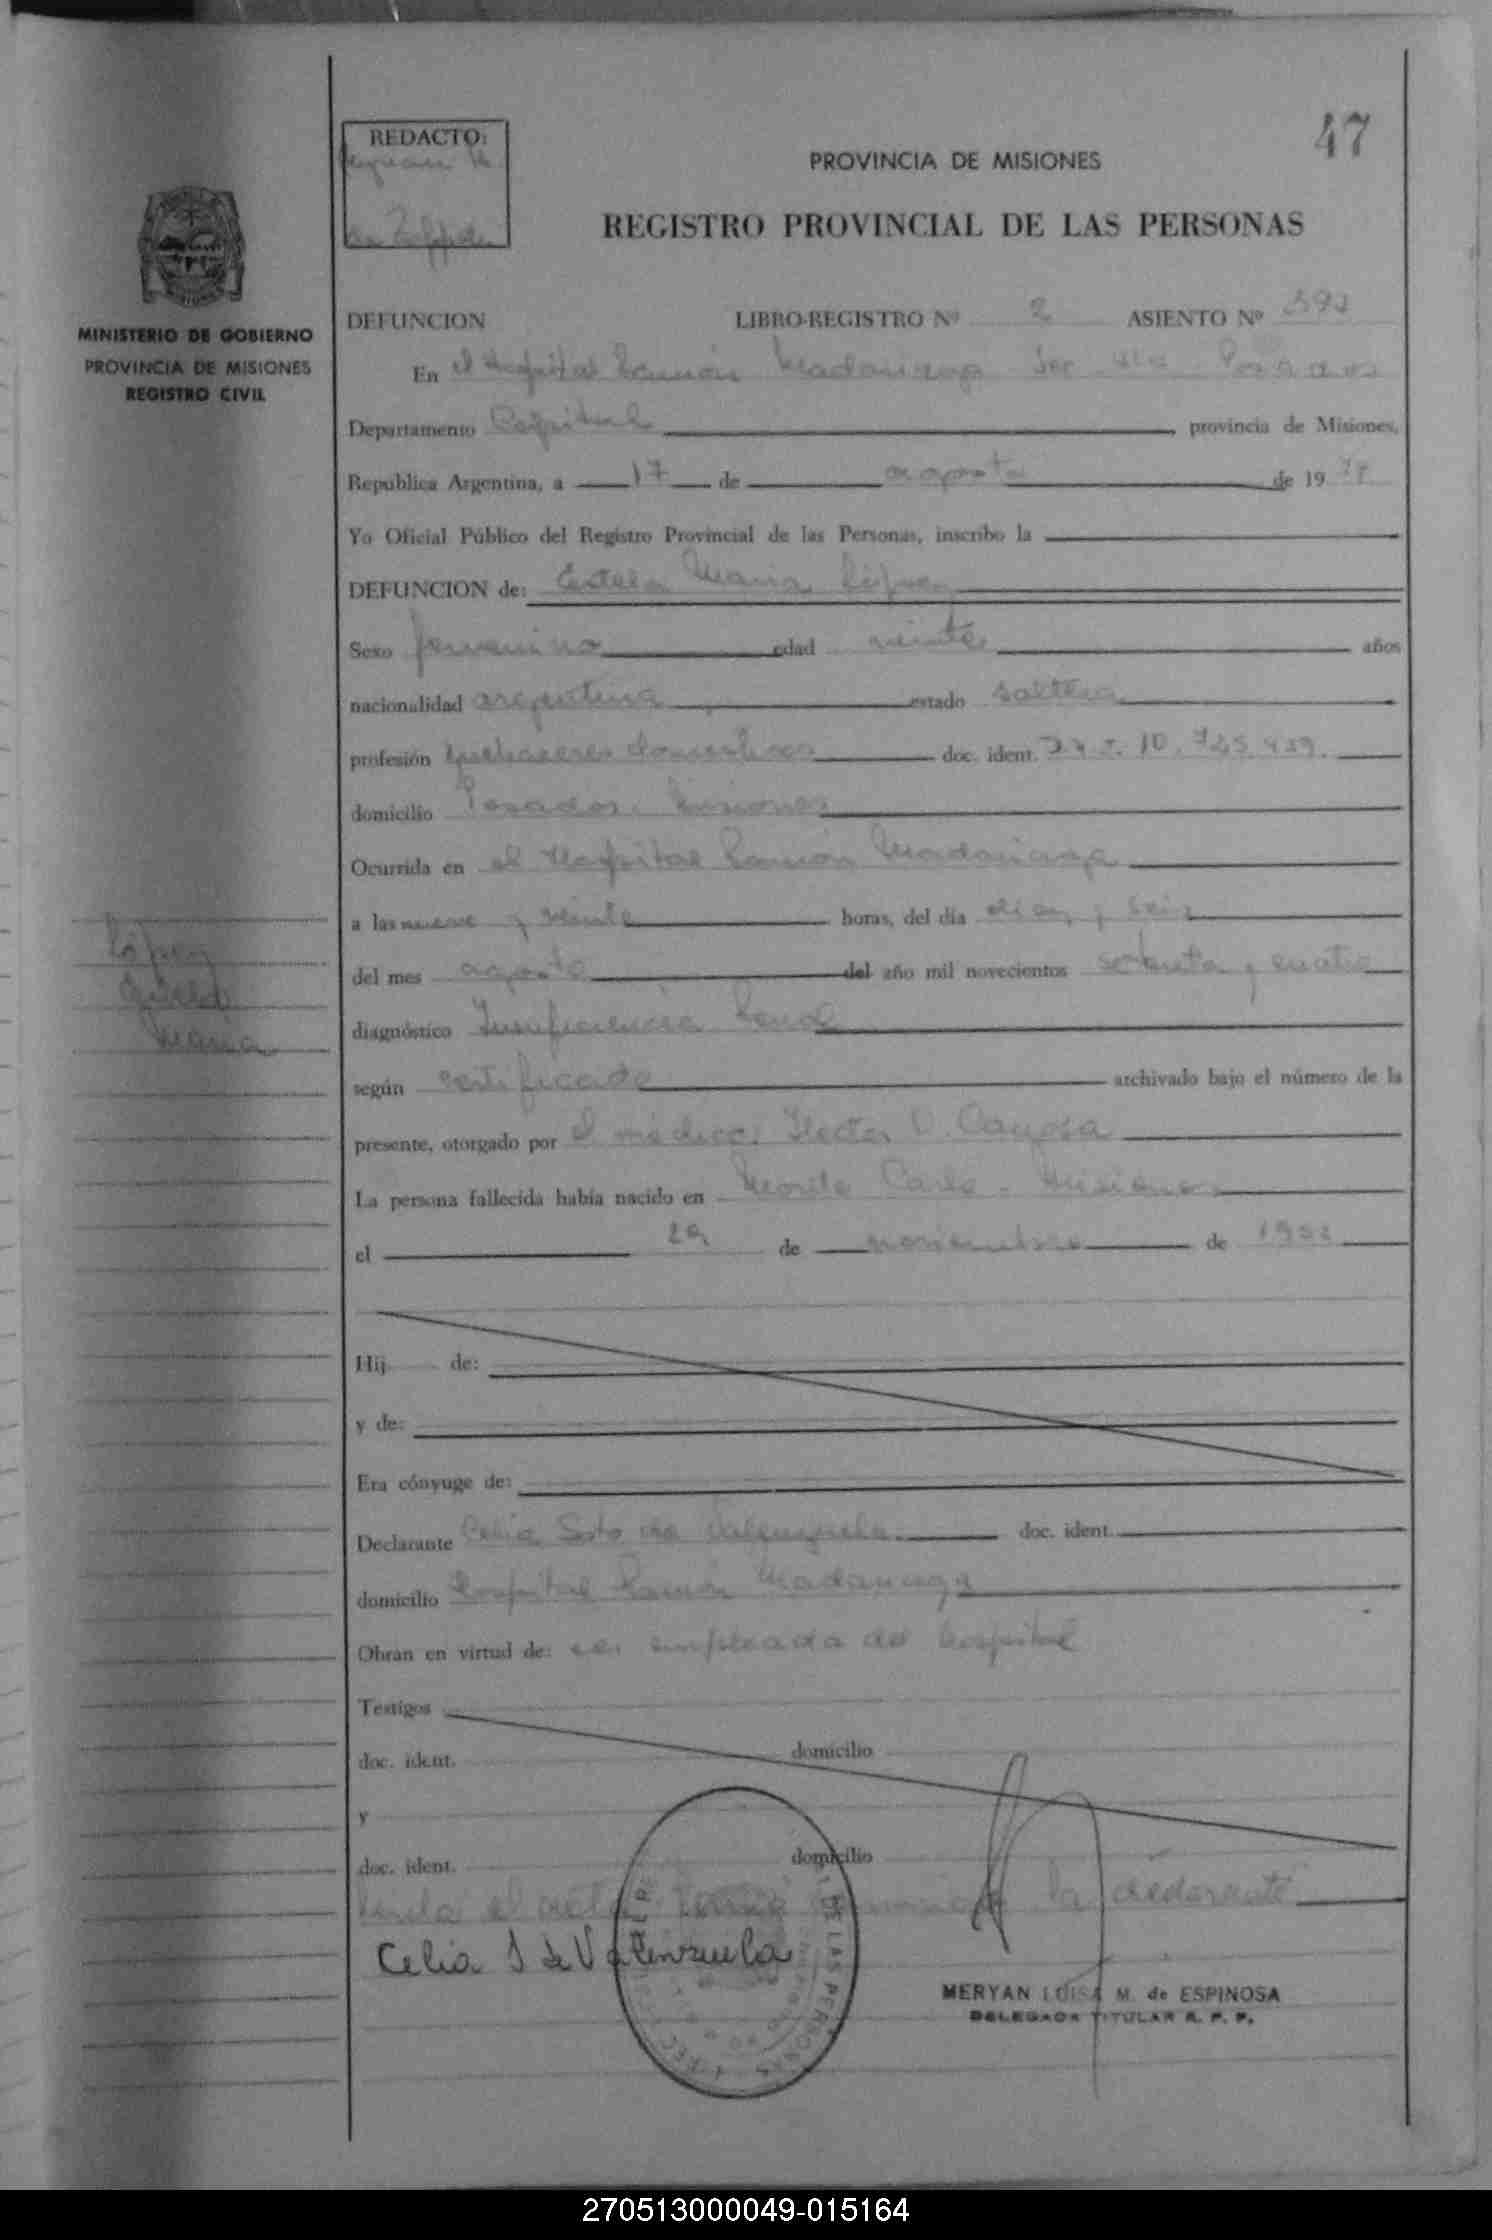 47
REDACTO:
PROVINCIA DE MISIONES
REGISTRO PROVINCIAL DE LAS PERSONAS
MINISTERIO DE GOBIERNO
PROVINCIA DE MISIONES
REGISTRO CIVIL
DEFUNCION LIBRO-REGISTRO Nº 2 ASIENTO Nº
En el Hospital Ramón Madariaga
Departamento Capital provincia de Misiones,
República Argentina, a 17 de agosto de 19 74
Yo Oficial Público del Registro Provincial de las Personas, inscribo la
DEFUNCION de: María López
Sexo femenino edad veinte años
nacionalidad argentina estado soltera
profesión quehaceres domésticos doc. ident.
domicilio Posadas. Misiones
Ocurrida en el Hospital Ramón Madariaga
a las nueve y veinte horas, del día diez y seis
del mes agosto del año mil novecientos setenta y cuatro
diagnóstico Insuficiencia Renal
López
María
según certificado archivado bajo el número de la
presente, otorgado por el médico: Hector
La persona fallecida había nacido en Misiones
el 29 de noviembre de
Hij de:
y de:
Era cónyuge de:
Declarante Celia Soto de Valenzuela doc. ident.
domicilio Hospital Ramón Madariaga
Obran en virtud de: ser empleada del hospital
Testigos
doc. ident. domicilio
y
doc. ident. domicilio
Leida el acta la declarante
Celia S de Valenzuela
DE LAS PERSONAS
MERYAN LUISA M. de ESPINOSA
DELEGADA TITULAR R. P. P.
270513000049-015164